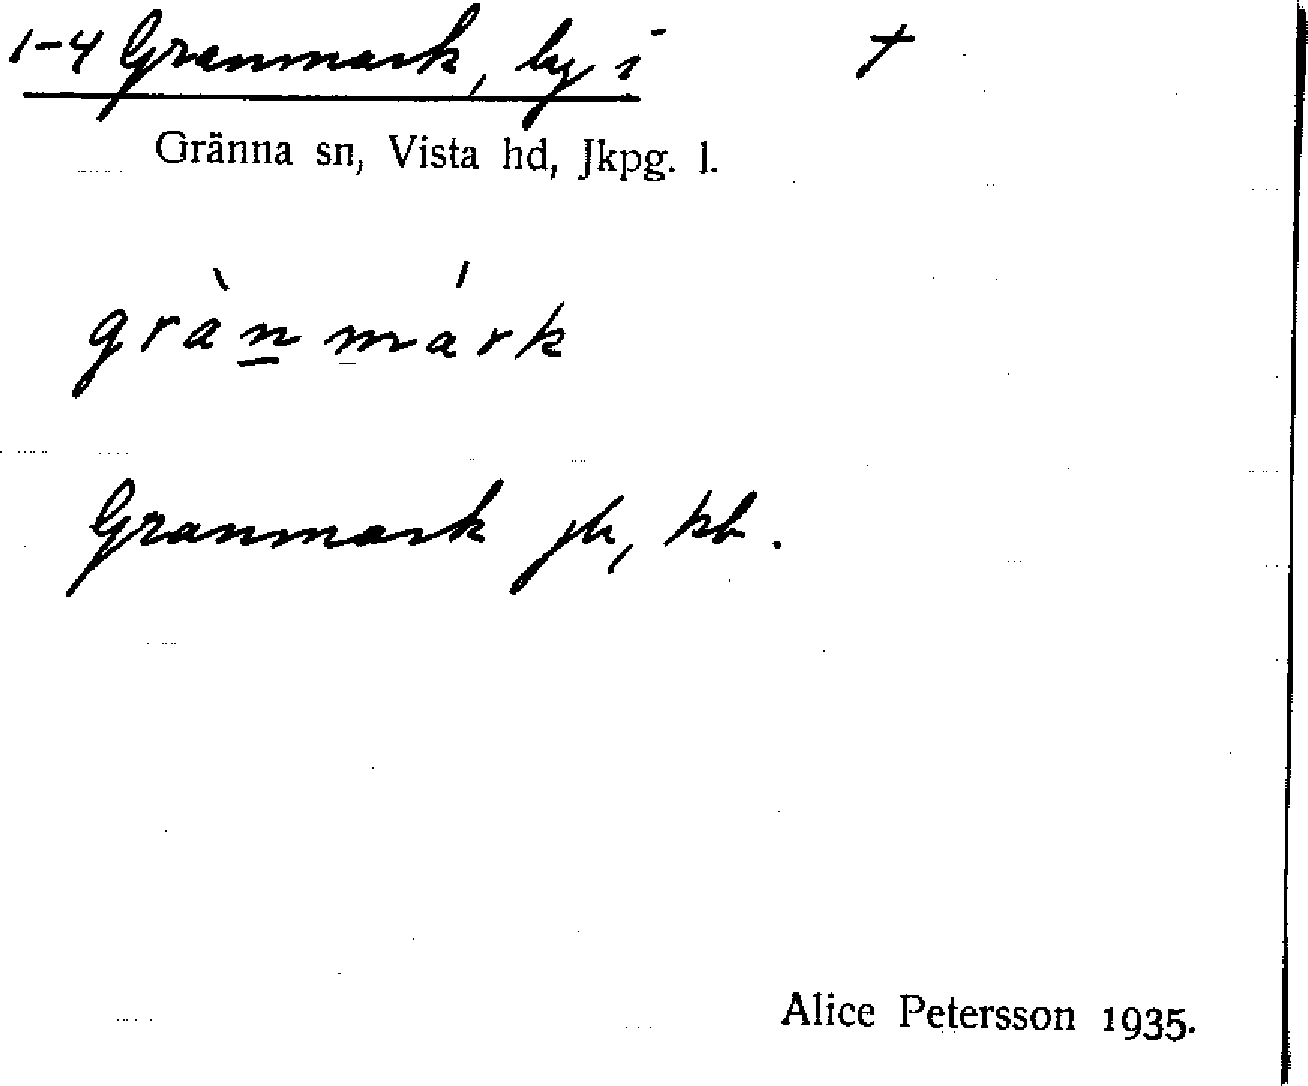 1-4 Granmark, by i +
Gränna sn, Vista hd, Jkpg. l.
grànmárk
Granmark jb, kb.
Alice Petersson 1935.